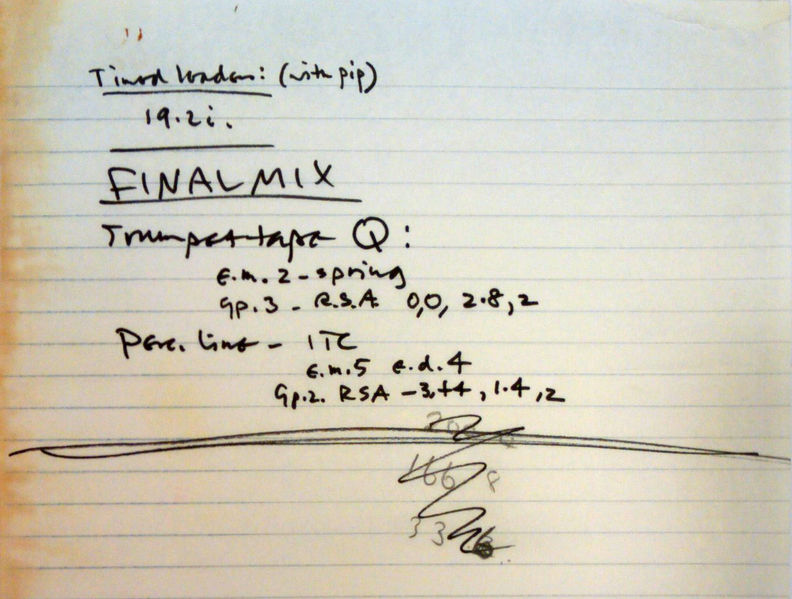 Timed leaders: (with pip)
19.2i.
FINAL MIX
Trumpet tape Q:
e.m. 2 - spring
Gp. 3 - R.S.A. 0,0, 2.8, 2
Perc. line - ITC
e.m. 5 e.d. 4
Gp. 2. RSA -3, +4, 1.4, 2
166 8
33